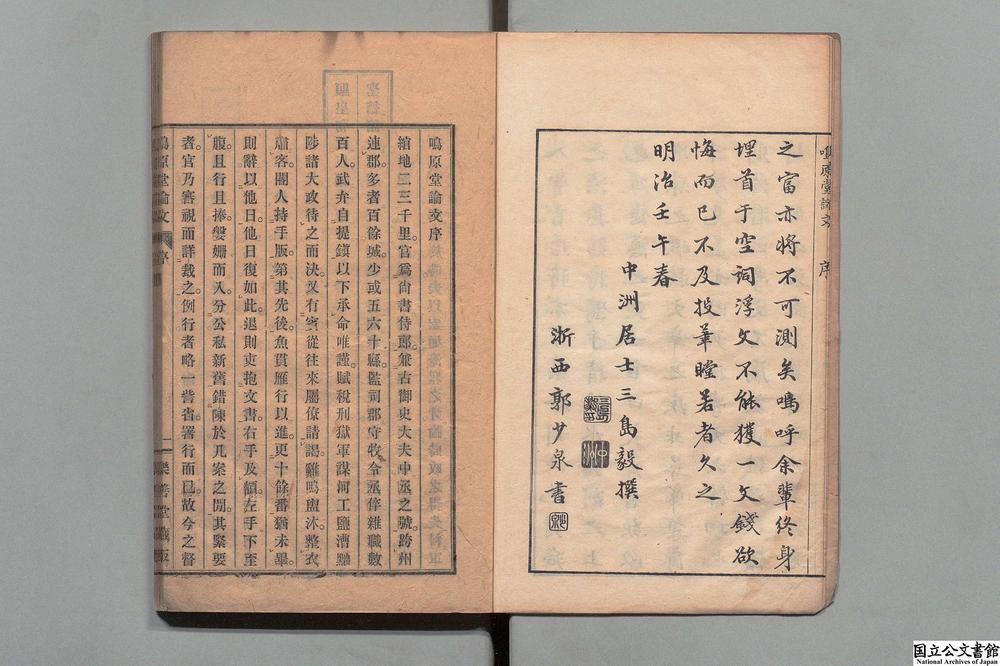 鳴原堂論文 序
之富亦將不可測矣嗚呼余輩終身
埋首于空詞浮文不能獲一文錢欲
悔而已不及投筆瞠若者久之
明治壬午春
中洲居士三島毅撰
浙西郭少泉書
鳴原堂論文序
綰地二三千里。官爲尚書侍郎。兼古御史大夫中丞之號。跨州
連郡。多者百餘城。少或五六十縣。監司郡守。牧令丞倅。雜職數
百人。武弁自提鎭以下承命唯謹。賦稅刑獄。軍謀河工。鹽漕黜
陟諸大政。待之而決。又有賓從往來。屬僚請謁。雞鳴盥沐。整衣
肅客。閽人持手版。第其先後。魚貫雁行以進。更十餘番猶未畢。
則辭以他日。他日復如此。退則吏抱文書。右手及額。左手下至
腹。且行且捧。槃姍而入。分公私新舊。錯陳於几案之間。其緊要
者。官乃審視而詳裁之。例行者略一訾省。署行而已。故今之督
鳴原堂論文 序 一 樂善堂藏版
国立公文書館
National Archives of Japan